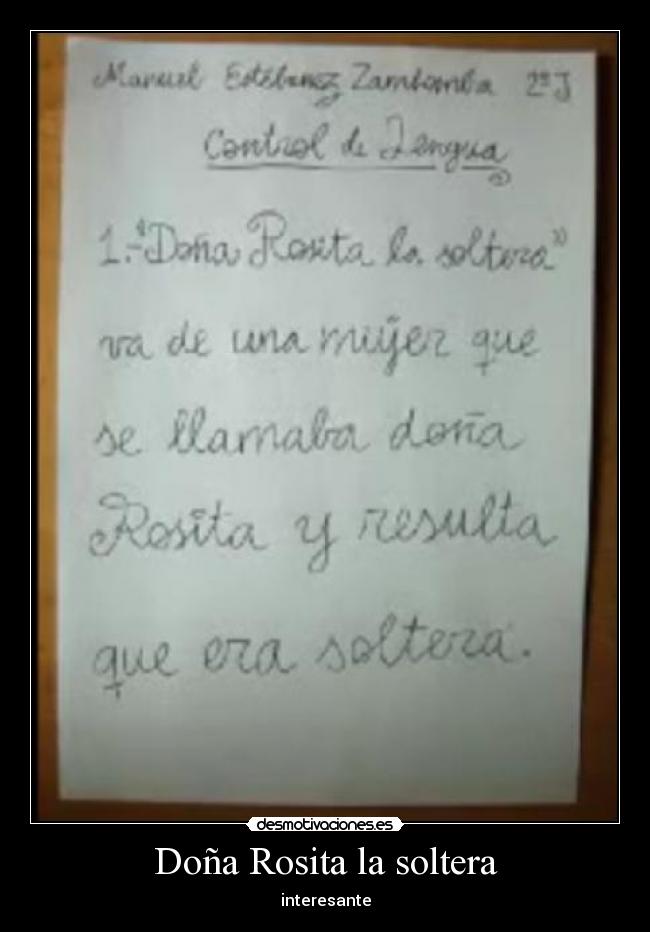 Manuel Estébanez Zambomba 2º J
Control de Lengua
1.-"Doña Rosita la soltera"
va de una mujer que
se llamaba doña
Rosita y resulta
que era soltera.
desmotivaciones.es
Doña Rosita la soltera
interesante